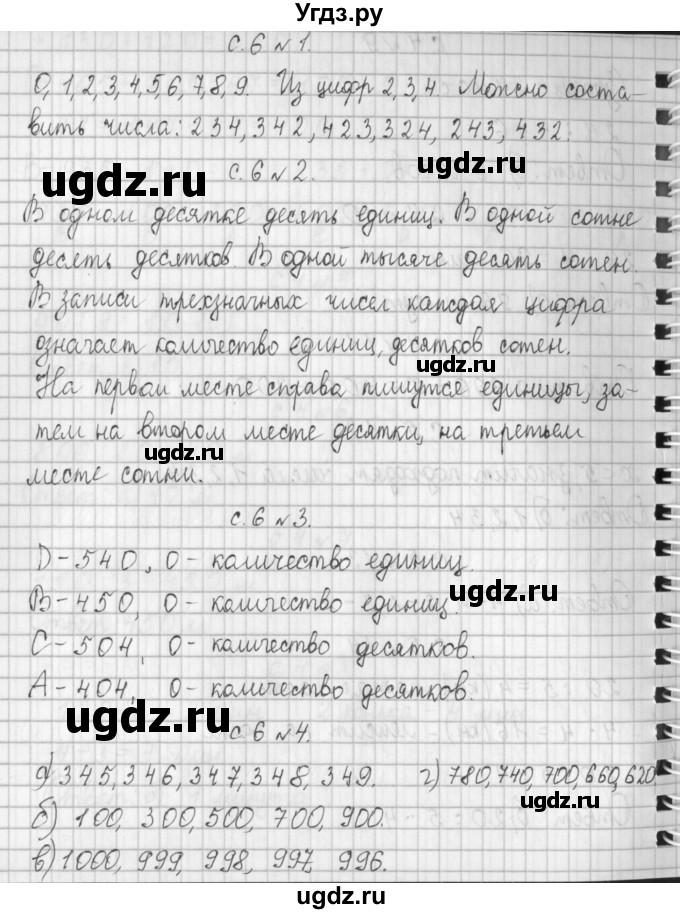 Угдз.ру
с.6 №1.
0,1,2,3,4,5,6,7,8,9. Из цифр 2,3,4. Можно соста-
вить числа: 234, 342, 423, 324, 243, 432.
ugdz.ru
ugdz.ru
с.6 №2.
В одном десятке десять единиц. В одной сотне
десять десятков. В одной тысяче десять сотен.
В записи трехзначных чисел каждая цифра
означает количество единиц, десятков сотен.
ugdz.ru
На первом месте справа пишутся единицы, за-
тем на втором месте десятки, на третьем
месте сотни.
с.6 №3.
D-540, 0- количество единиц.
В-450, 0- количество единиц.
ugdz.ru
С-504, 0- количество десятков.
А-404, 0- количество десятков.
ugdz.ru
с.6 №4.
а) 345, 346, 347, 348, 349. г) 780, 740, 700, 660, 620.
ugdz.ru
б) 100, 300, 500, 700, 900.
в) 1000, 999, 998, 997, 996.
ugdz.ru